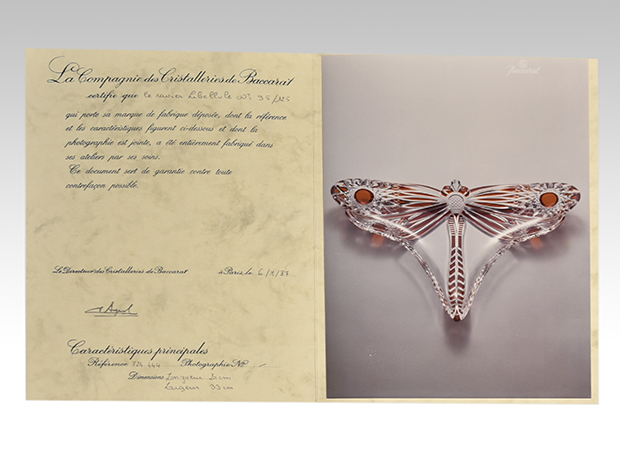 La Compagnie des Cristalleries de Baccarat
certifie que le ravier Libellule N° 95/125
qui porte sa marque de fabrique déposée, dont la référence
et les caractéristiques figurent ci-dessous et dont la
photographie est jointe, a été entièrement fabriqué dans
ses ateliers par ses soins.
Ce document sert de garantie contre toute
contrefaçon possible.
Le Directeur des Cristalleries de Baccarat
à Paris le
Caractéristiques principales
Référence Photographie N°
Dimensions Longueur
Largeur 33 cm
Baccarat